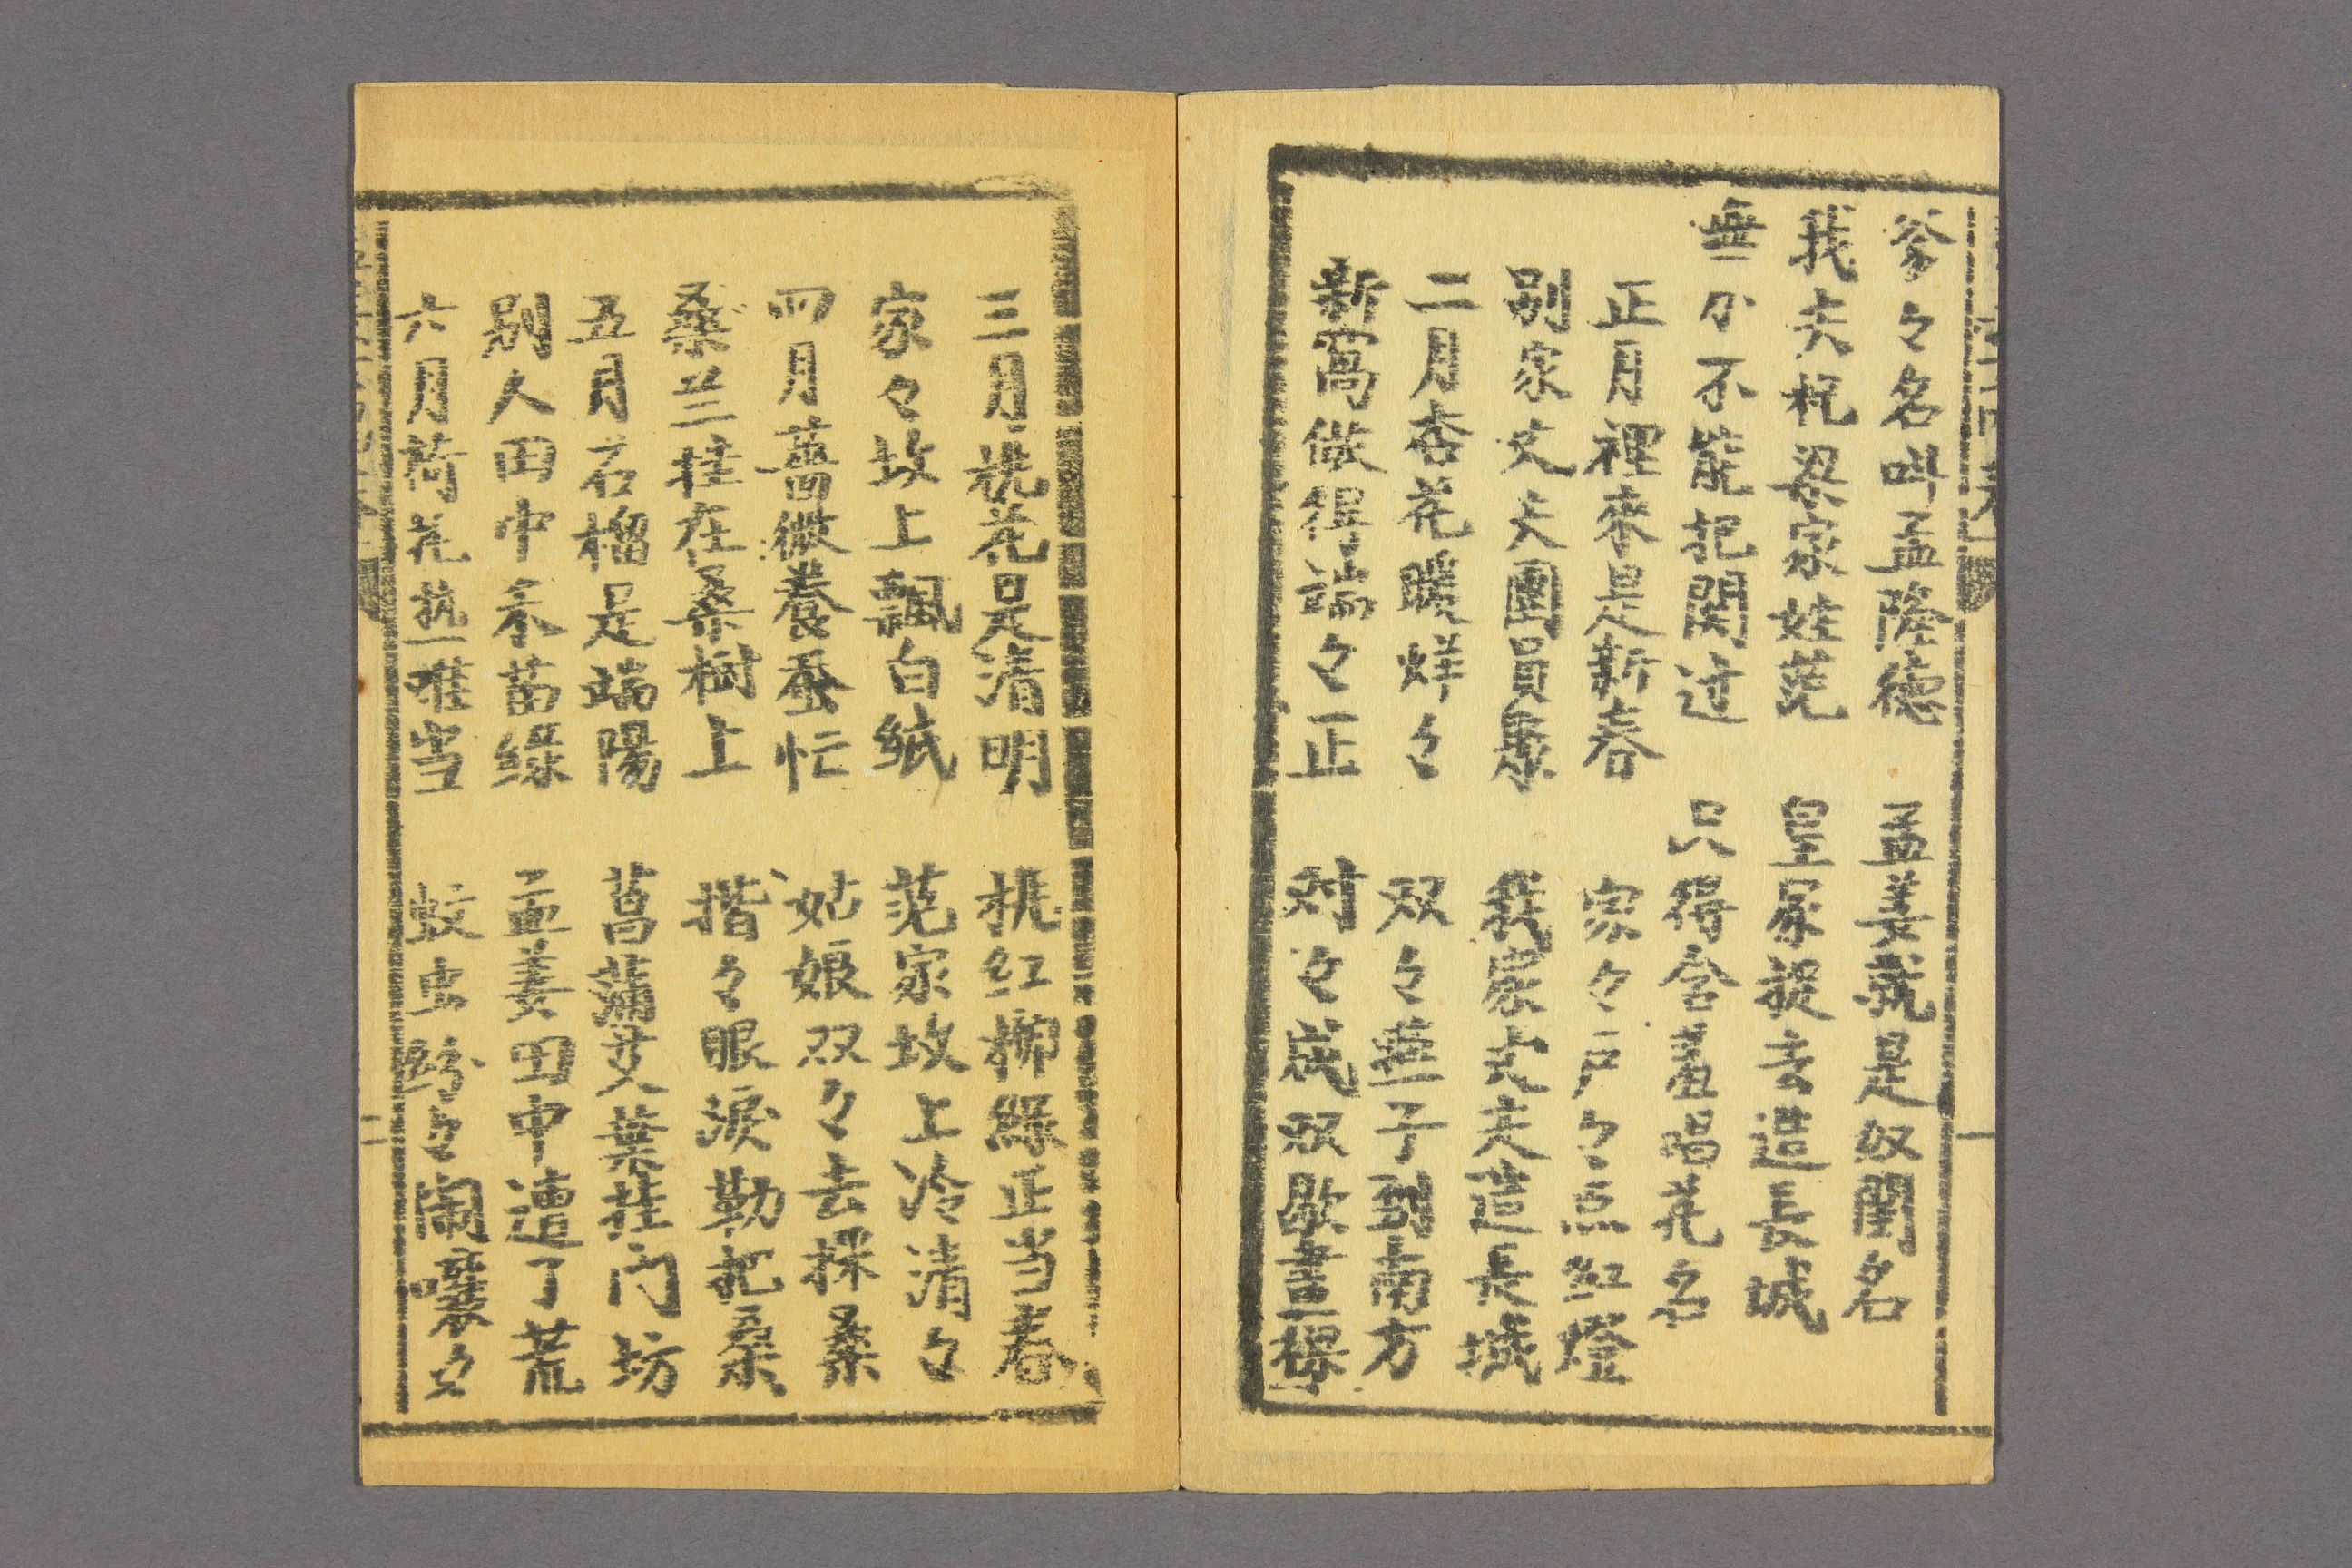 爹々名叫孟隆德 孟姜就是奴閨名
我夫杞梁家姓范 皇家捉去造長城
無小不能把關过 只得含羞唱花名
正月裡來是新春 家々戸々点紅燈
別家丈夫團員聚 我家丈夫走造長城
二月杏花暖烊々 双々燕子到南方
新窩做得端々正 対々成双歇畫樑
三月桃花是清明 桃红柳綠正当春
家々坟上飄白紙 范家坟上冷清々
四月薔薇養蚕忙 姑娘双々去採桑
桑兰挂在桑樹上 揩々眼淚勒把桑
五月石榴是端陽 菖蒲艾葉挂门坊
別人田中禾苗綠 孟姜田中遭了荒
六月荷花熱难当 蚊虫
二
一